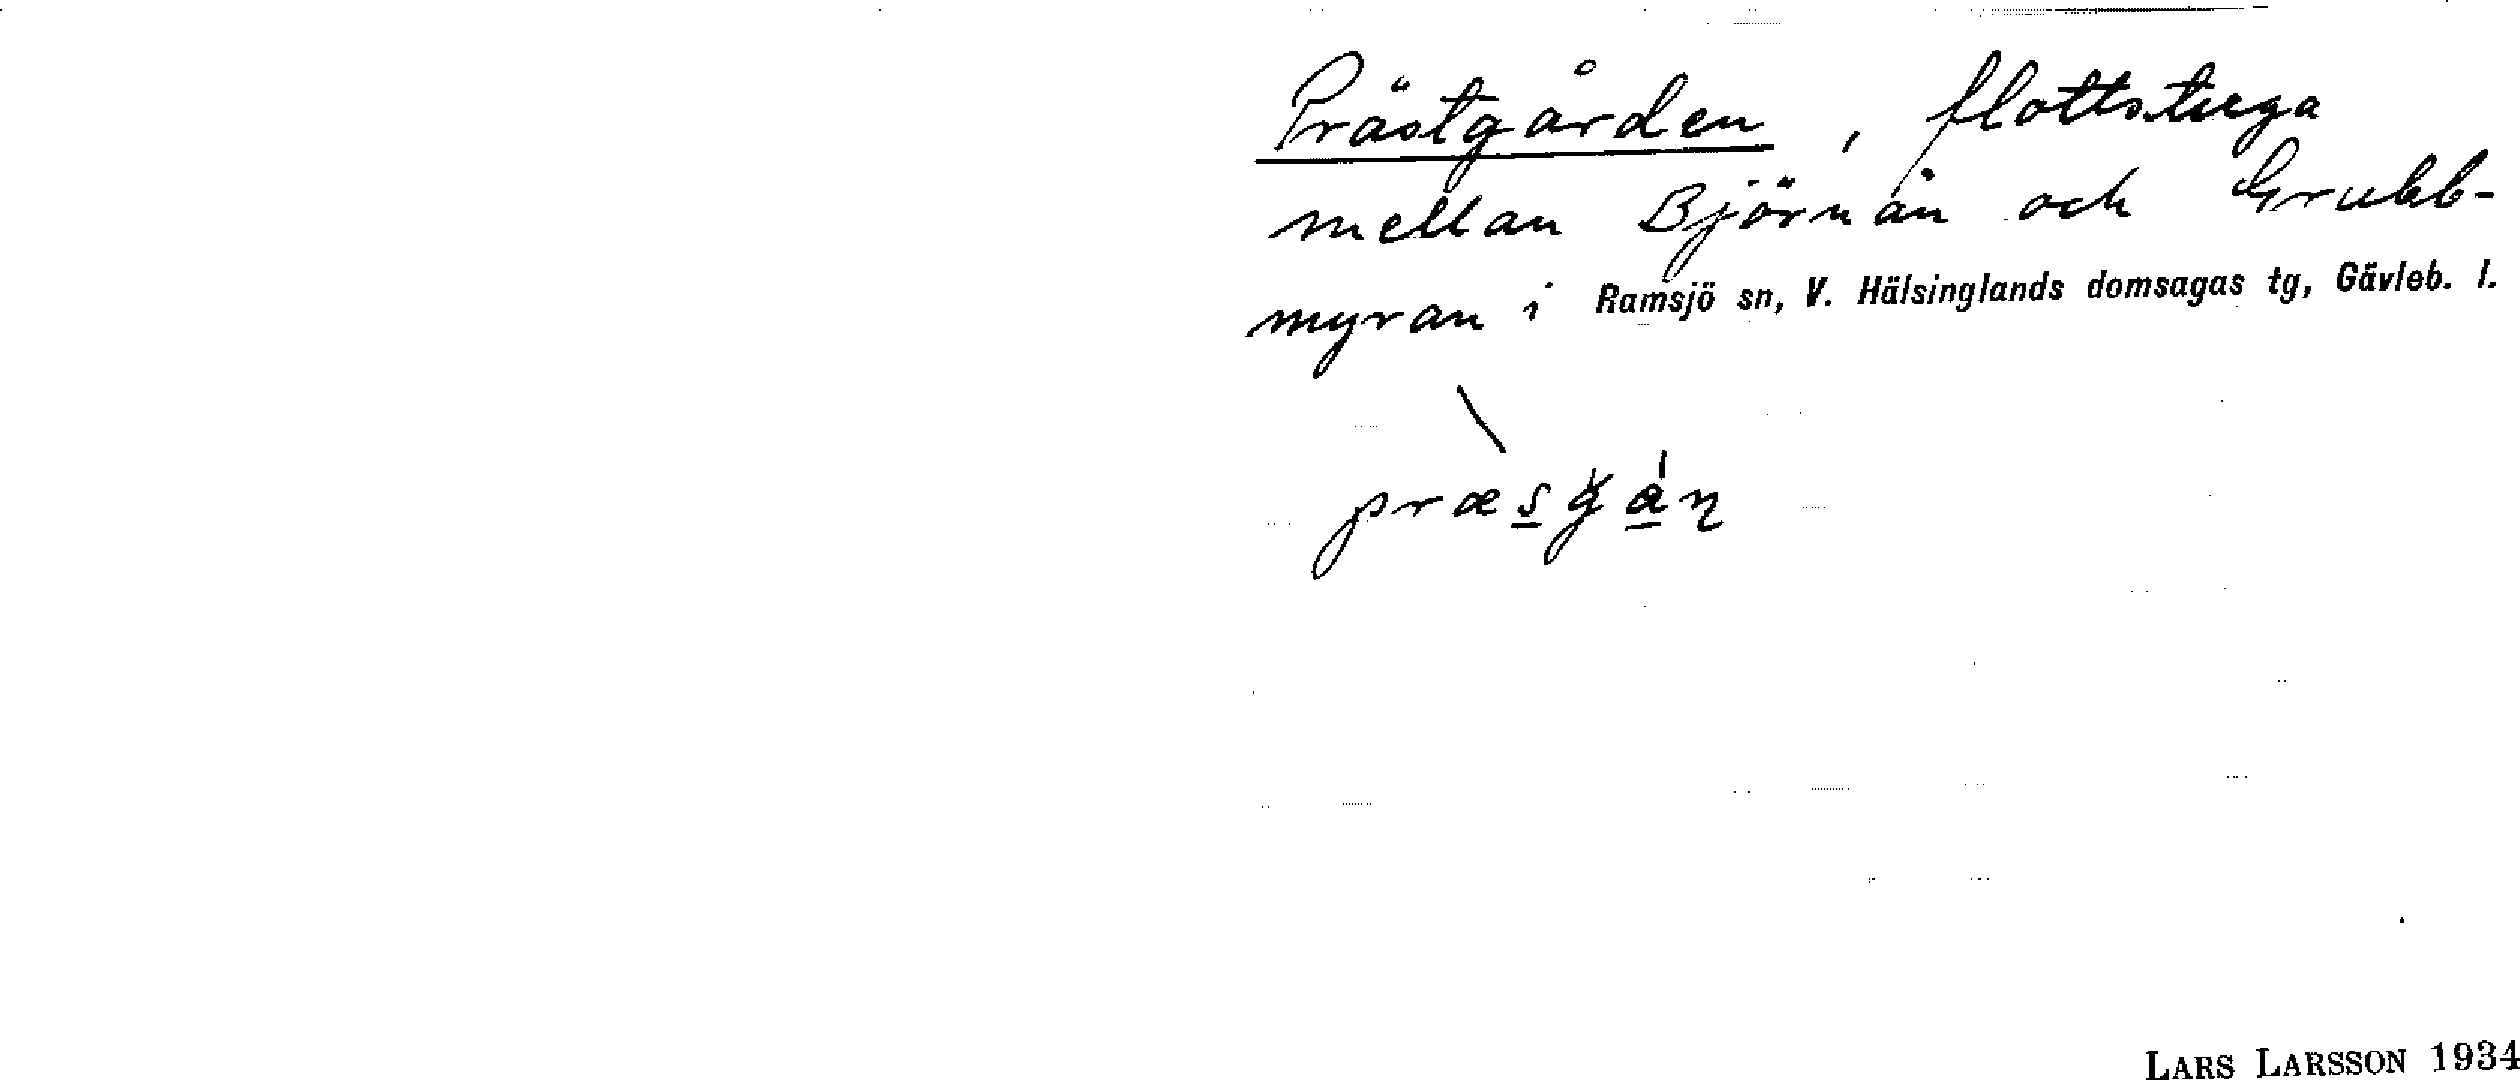 Prästgården, flottstuga
mellan Björnån och Grubb-
myran i Ramsjö sn, V. Hälsinglands domsagas tg, Gävleb. l.
LARS LARSSON 1934